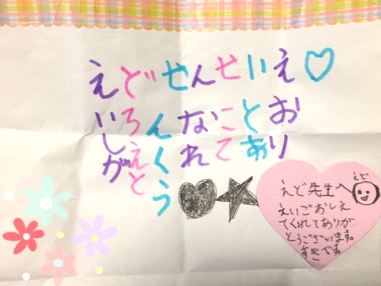 えどせんせいえ♡
いろんなことお
しえくれてあり
がとう
えど先生へ
えど
えいごおしえ
てくれてありが
とうございます。
すきです